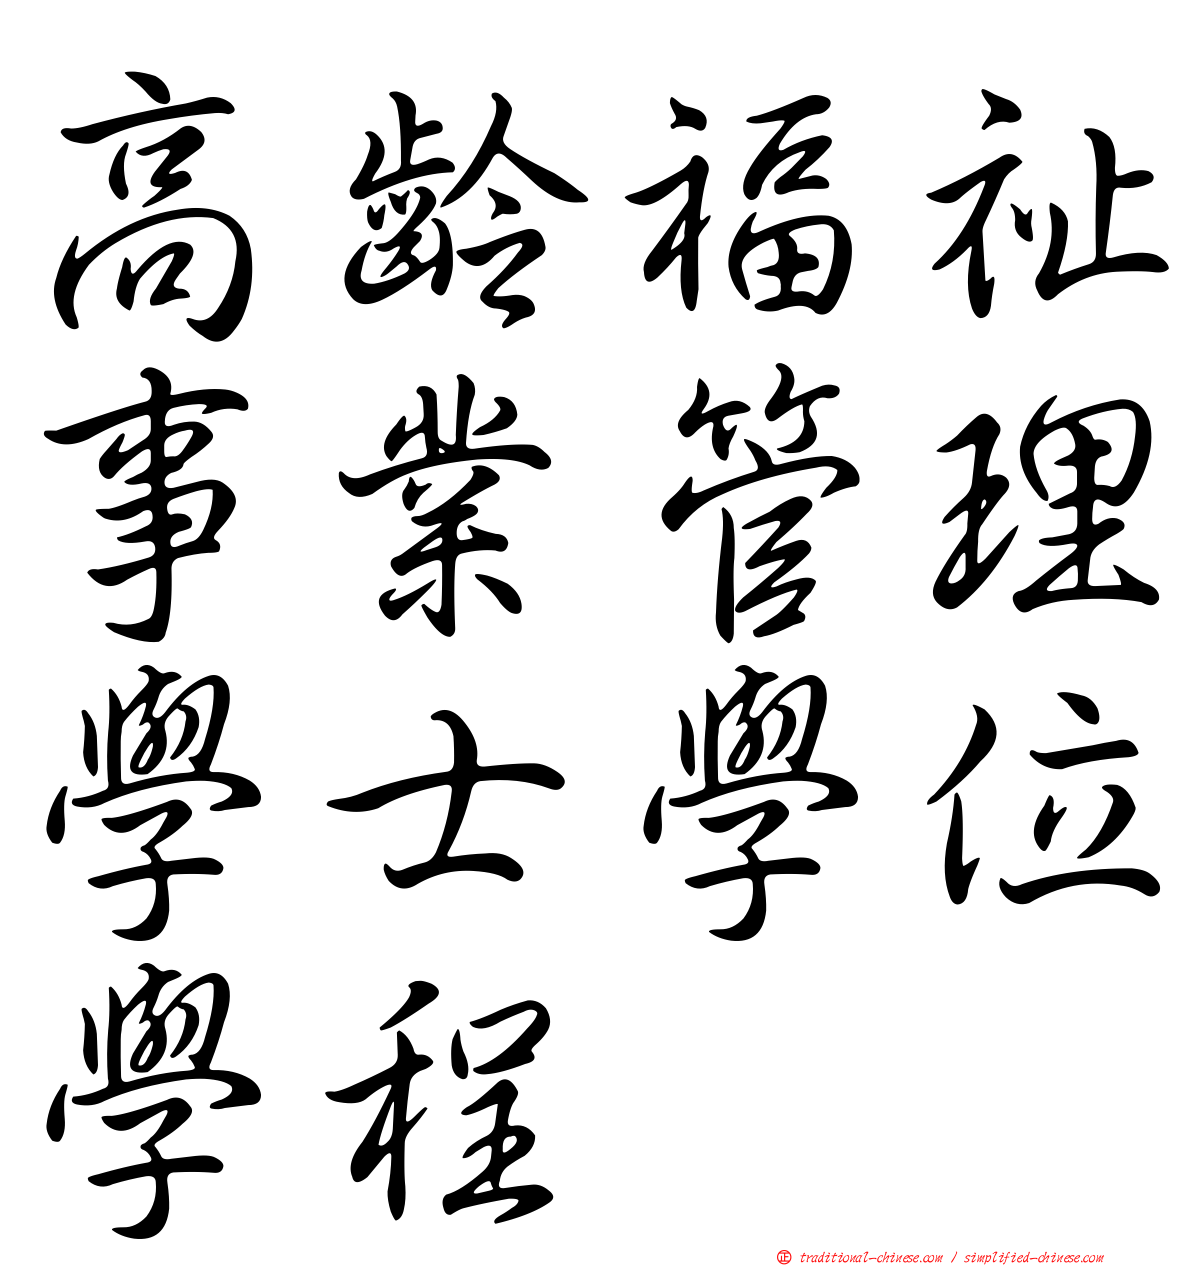 高齡福祉
事業管理
學士學位
學程
㊣ traditional-chinese.com / simplified-chinese.com